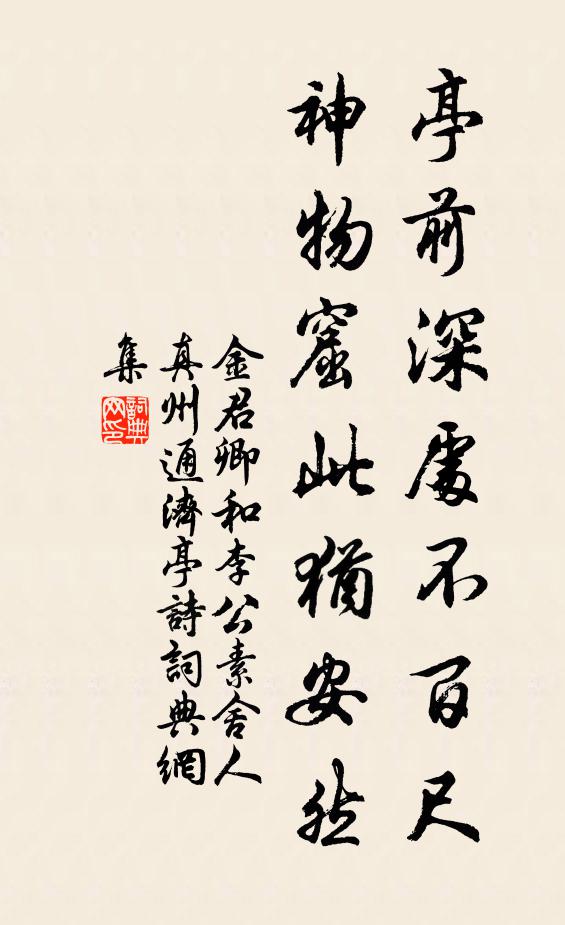 亭前深處不百尺
神物窟此猶安然
金君卿和李公素舍人
真州通濟亭詩詞典網
集
詞典網印